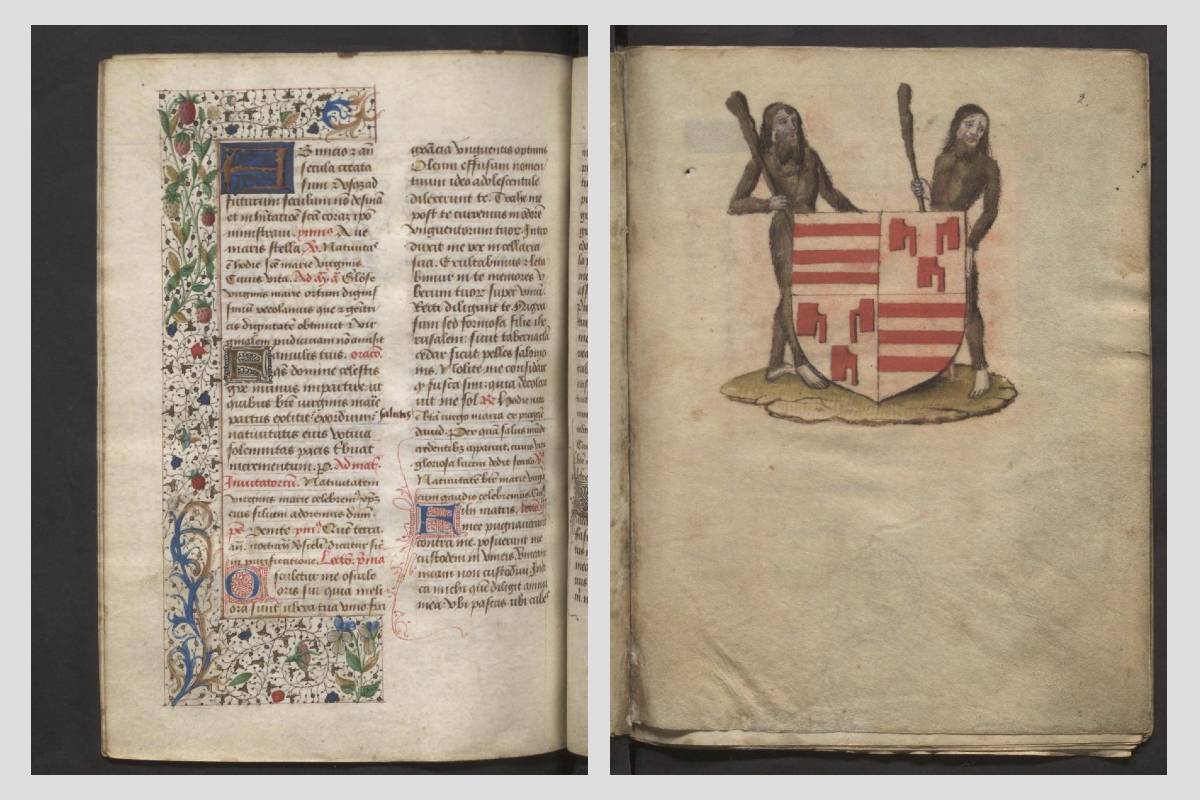 Ab inicio & an
secula creata
sum & usq3 ad
futurum seculum nō desinā
et in hitacōe scā corā ipō
ministravi. ymnus Ave
maris stella. V. Nativitas
ē hodie scē marie virginis
Cuius vita. Ad mᵃ. aᵃ Gl̄ose
virginis marie ortum digniss
simū recolamus que & genitri
cis dignitatē obtinuit & vir
ginalem pudiciciam nō amisit
Famulis tuis. oracō.
qs domine celestis
grē munus impartire ut
quibus btē virginis marie
partus extitit exordium salutis
nativitatis eius votiva
solemnitas pacis tbuat
incrementum. p. Ad mat.
Invitatoriū. Nativitatem
virginis marie celebrem
eius filium adoremus dnm.
ps Venite. ymᵒ. Quē terra.
an. nocturn dicātur sic
in purificatione. Lectō. pma
Osculetur me osculo
oris sui quia meli
ora sunt ubera tua vino fra
grācia unguentis optimis
Oleum effusum nomen
tuum ideo adolescentule
dilexerunt te. Trahe me
post te curremus in odorē
unguentorum tuor. Intro
duxit me rex in cellaria
sua. Exultabimus & leta
bimur in te memores u
berum tuor super vinū.
Recti diligunt te. Nigra
sum sed formosa filie ihe
rusalem: sicut tabernacla
cedar sicut pelles salomo
nis. Nolite me considare
q fusca sim: quia decolora
vit me sol. R. Hodie nata
ē btā virgo maria ex progenie
david. Per quā salus mūdi
credentibz apparuit. cuius vita
gloriosa lucem dedit seculo. V.
Nativitatē btē marie virgīs
cum gaudio celebremus. Cuiꝰ
Filii matris. lectō
mee pugnaverūt
contra me. posuerunt me
custodem in vineis. vineam
meam non custodivi. Indi
ca michi quē diligit anima
mea. ubi pascas ubi cubes
2.